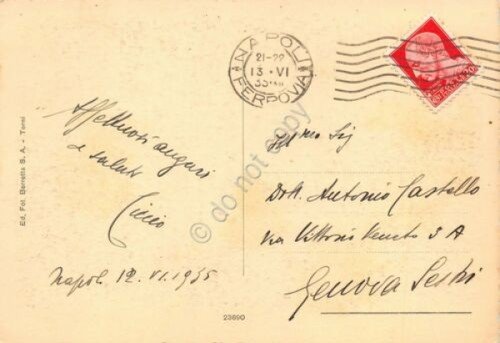 Affettuosi auguri
e saluti
Ciccio
Napoli 12.VI.1935
Ed. Fot. Berretta S. A. - Terni
23690
NAPOLI
21-22
13·VI
35
FERROVIA
Ill/mo Sig
Dott. Antonio Castello
Via Vittorio Veneto 3 A
Genova Sestri
© do not copy